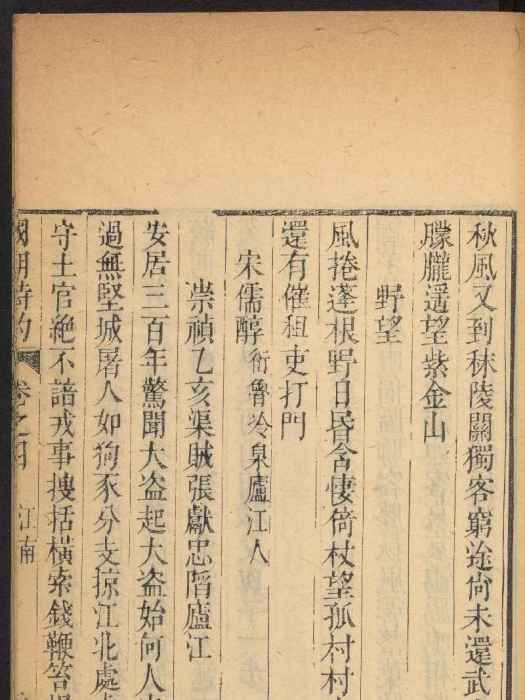 秋風又到秣陵關獨客窮途尚未還武
朦朧遥望紫金山
野望
風捲蓬根野日昬含悽倚杖望孤村村
還有催租吏打門
宋儒醇 衍魯冷泉廬江人
崇禎乙亥渠賊張獻忠陷廬江
安居三百年驚聞大盗起大盗始何人
過無堅城屠人如狗豕分支掠江北處
守土官絶不諳戎事搜括橫索錢鞭笞
國朝詩的 卷之四 江南